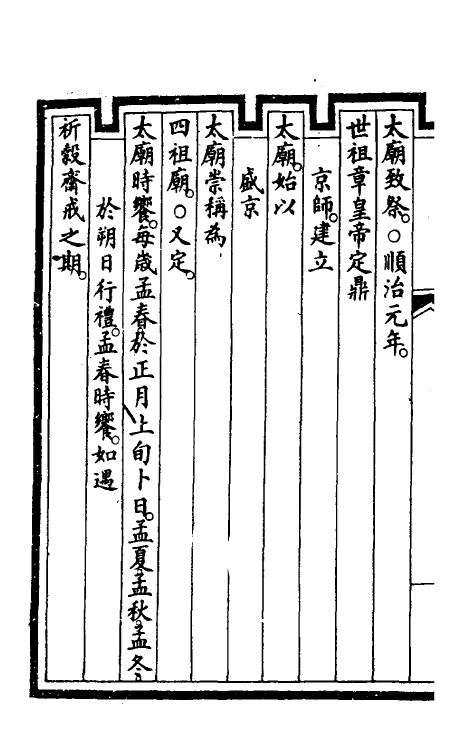 太廟致祭。○順治元年。
世祖章皇帝定鼎
京師。建立
太廟。始以
盛京
太廟崇稱為
四祖廟。○又定。
太廟時饗。每歲孟春於正月上旬卜日。孟夏。孟秋。孟冬。
於朔日行禮。孟春時饗。如遇
祈穀齋戒之期。